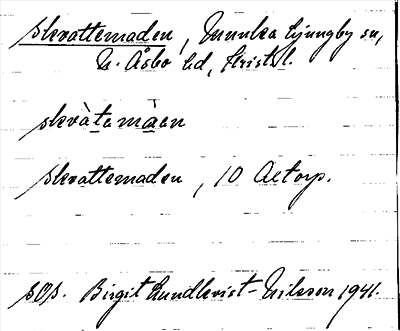 Skvattemaden, Munka Ljungby sn,
N. Åsbo hd, Krist. l.
skvàtamàen
Skvattemaden, 10 Aetorp.
sOs. Birgit Lundkvist-Nilsson 1941.